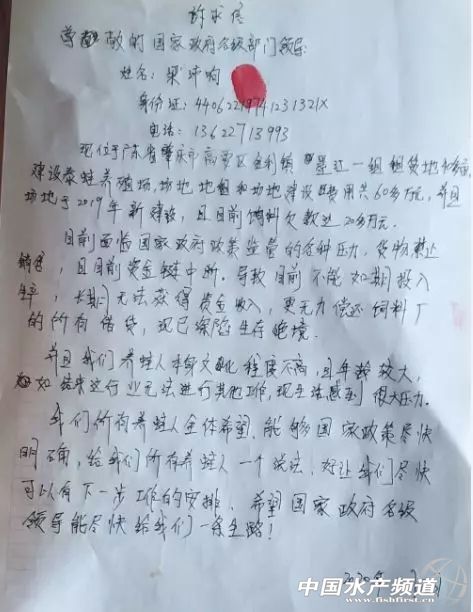 诉求信
尊敬的国家政府各级部门领导
姓名:梁
身份证:44062219741231321X
电话:13622713993
现位于广东省肇庆市高要区金利镇 一组租赁地
建设泰蛙养殖场,场地地租和场地建设费用共60多万元,并且
场地于2019年新建设,且目前饲料欠款达20多万元.
目前面临国家政府政策监量的各种压力,货物禁止
销售,且目前资金链中断.导致目前不能如期投入
生产,长期无法获得资金收入,更无力偿还饲料厂
的所有借贷,现已深陷生存绝境.
并且我们养蛙人本身文化程度不高,且年龄较大,
如结束这行业无法进行其他工作,现生活感到很大压力.
我们所有养蛙人全体希望,能够国家政策尽快
明确,给我们所有养蛙人一个说法,好让我们尽快
可以有下一步工作的安排,希望国家政府各级
领导能尽快给我们一条生路!
中国水产频道
www.fishfirst.cn